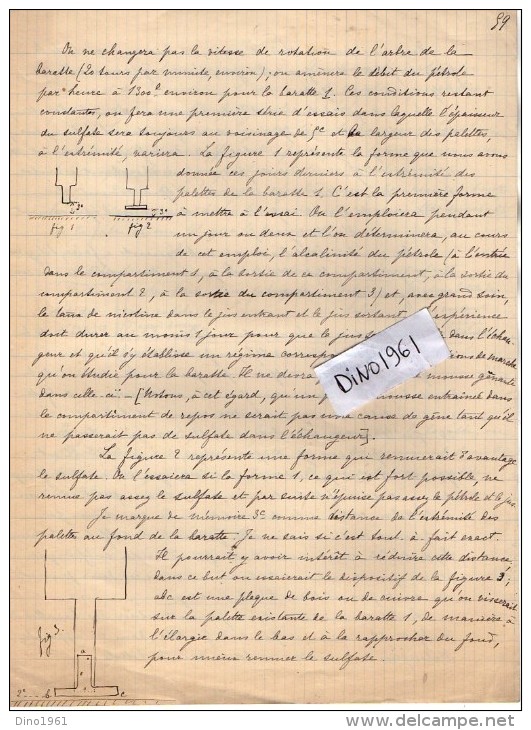 99
On ne changera pas la vitesse de rotation de l'arbre de la
baratte (20 tours par minute, environ); on amènera le débit du pétrole
par heure à 1300 environ pour la baratte 1. Ces conditions restant
constantes, on fera une première série d'essais dans laquelle l'épaisseur
du sulfate sera toujours au voisinage de et la largeur des palettes,
à l'extrémité, variera. La figure 1 représente la forme que nous avons
donnée ces jours derniers à l'extrémité des
palettes de la baratte 1. C'est la première forme
à mettre à l'essai. On l'emploiera pendant
un jour ou deux et l'on déterminera, au cours
de cet emploi, l'alcalinité du pétrole (à l'entrée
fig 1
fig 2
dans le compartiment 1, à la sortie de ce compartiment, à la sortie du
compartiment 2, à la sortie du compartiment 3) et, avec grand soin,
le taux de nicotine dans le jus entrant et le jus sortant. L'expérience
doit durer au moins 1 jour pour que le jus dans l'échan-
geur et qu'il s'y établisse un régime de marche
qu'on étudie pour la baratte. Il ne devra mousse gênante
dans celle-ci. — [Notons, à cet égard, qu'un mousse entraînée dans
le compartiment de repos ne serait pas une cause de gêne tant qu'il
ne passerait pas de sulfate dans l'échangeur].
La figure 2 représente une forme qui remuerait davantage
le sulfate. On l'essaiera si la forme 1, ce qui est fort possible, ne
remue pas assez le sulfate et par suite n'épuise pas assez le pétrole et le jus.
Je marque de mémoire 3c comme distance de l'extrémité des
palettes au fond de la baratte. Je ne sais si c'est tout à fait exact.
Il pourrait y avoir intérêt à réduire cette distance;
dans ce but on essaierait le dispositif de la figure 3;
abc est une plaque de bois ou de cuivre qu'on visserait
sur la palette existante de la baratte 1, de manière à
l'élargir dans le bas et à la rapprocher du fond,
pour mieux remuer le sulfate.
fig 3.
a
b
c
2c
DINO1961
Dino1961
www.delcampe.net